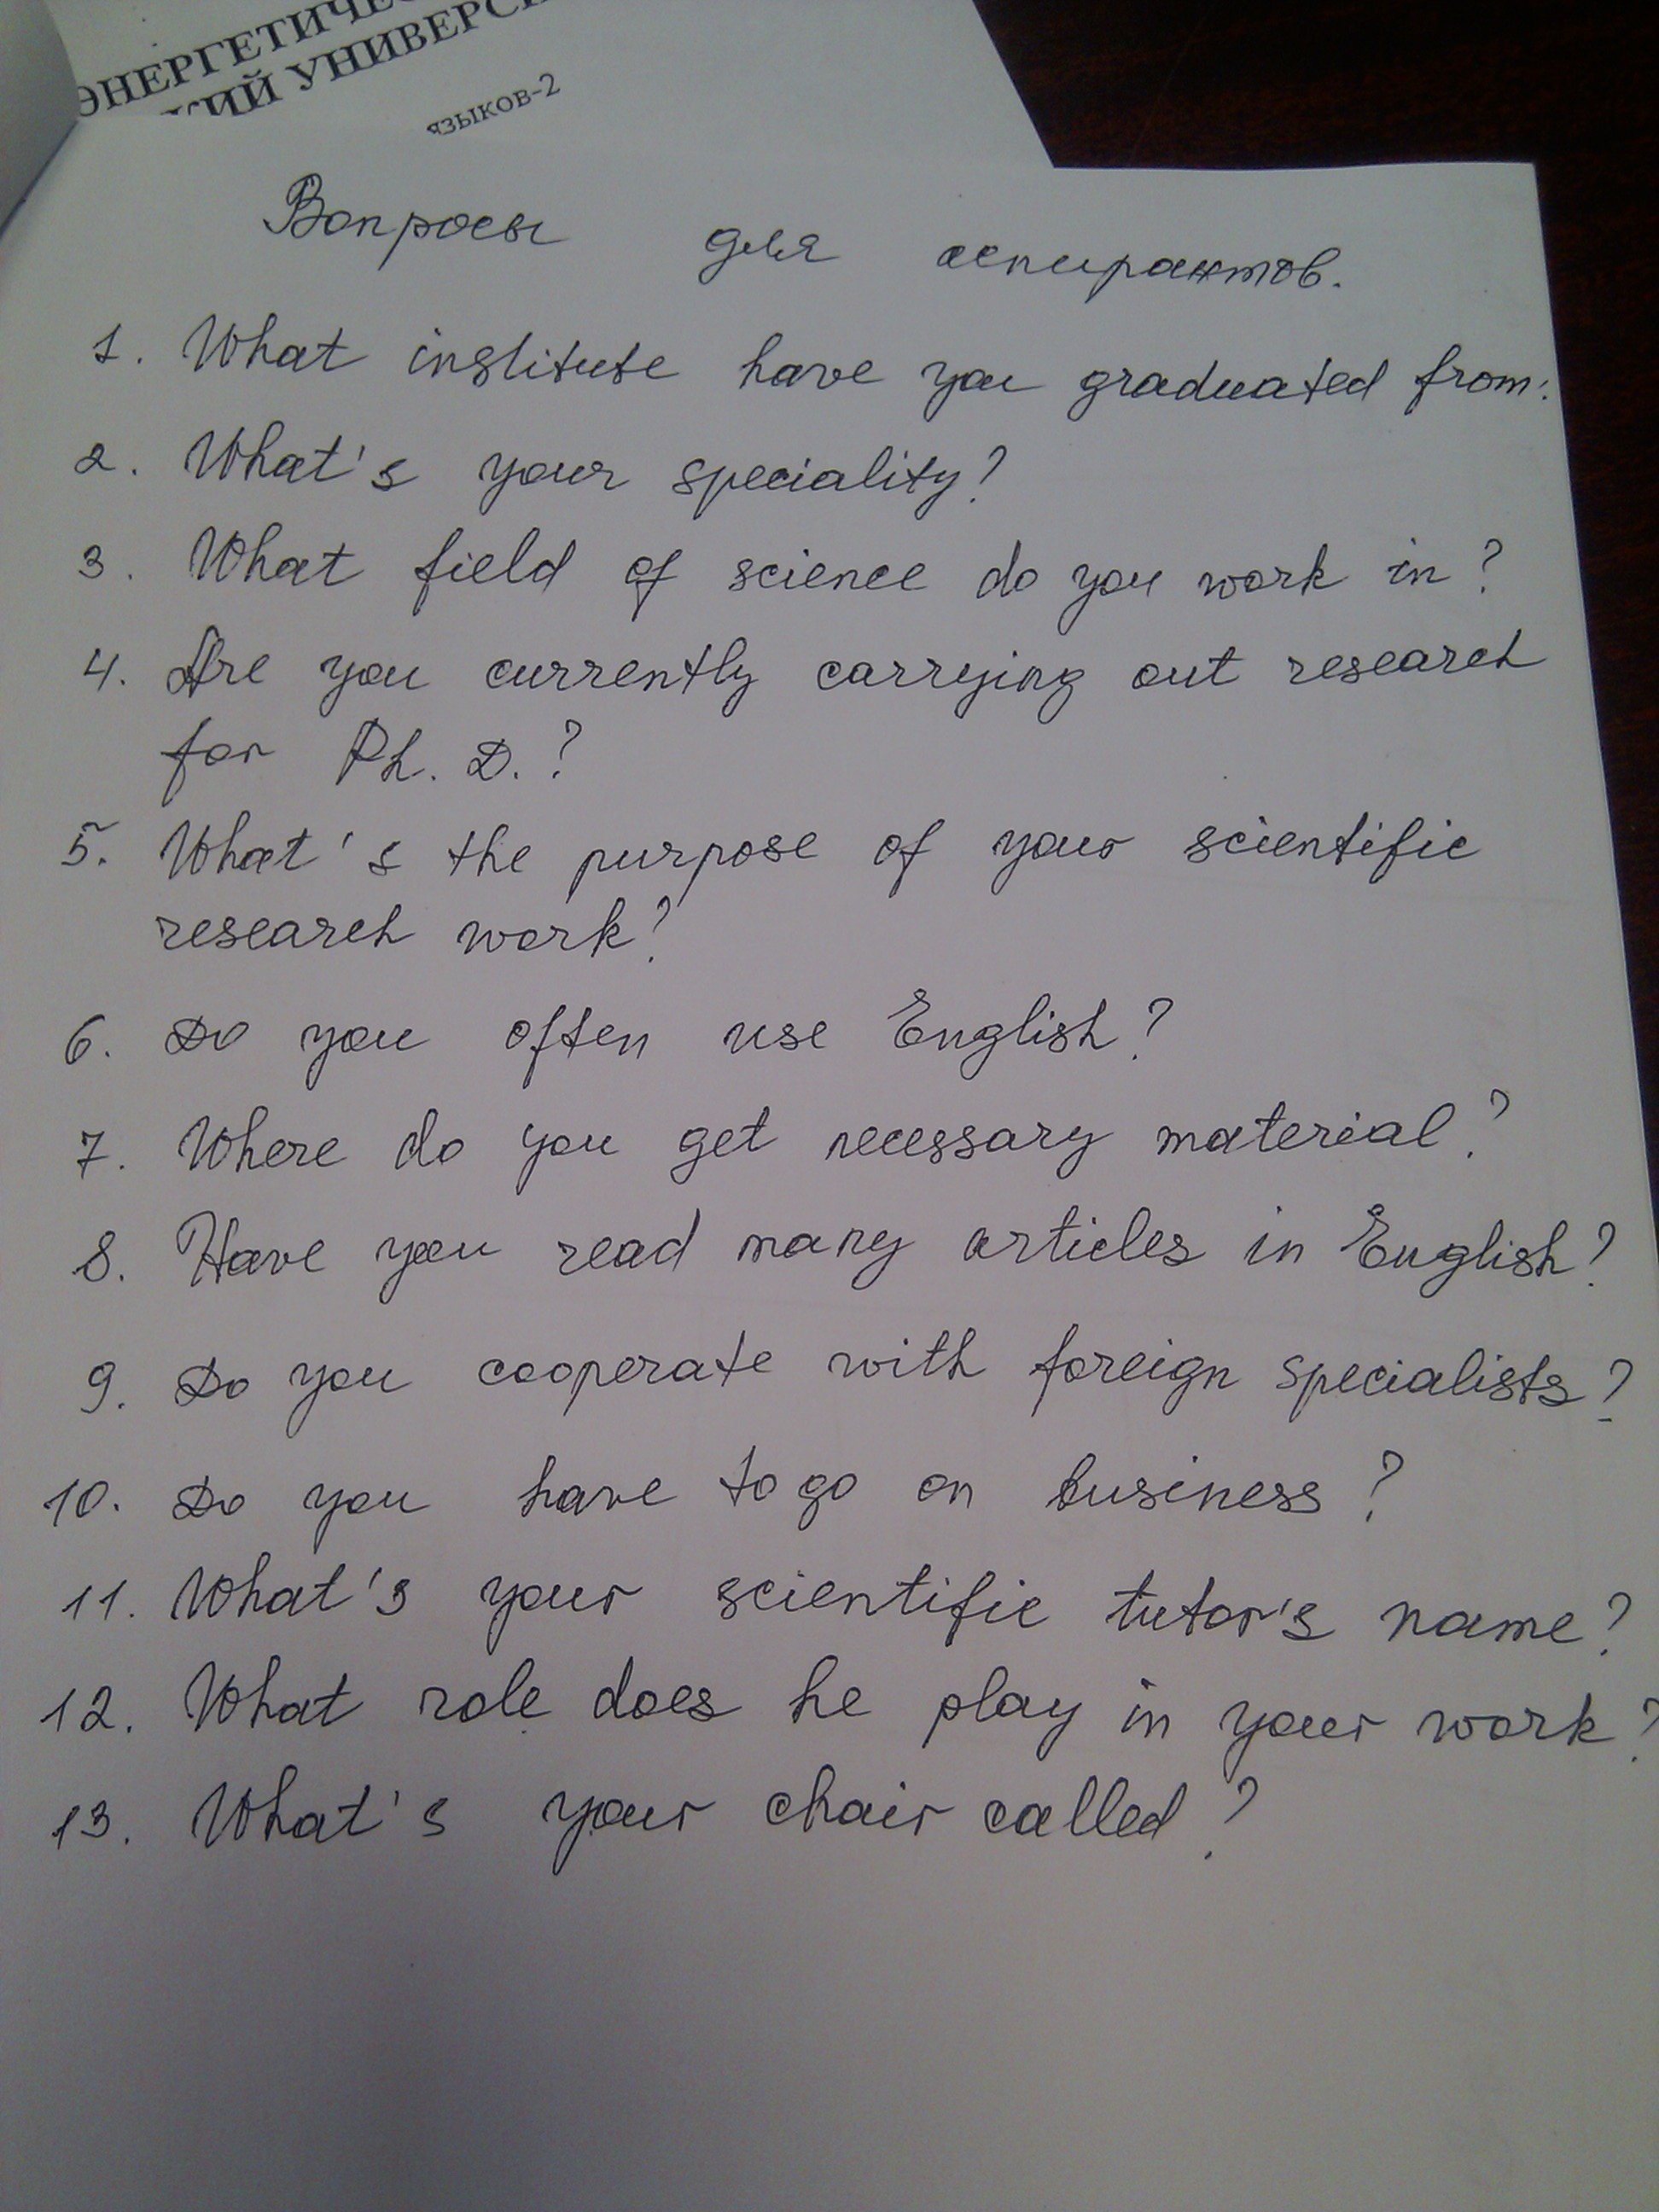 ЭНЕРГЕТИЧЕС
КИЙ УНИВЕРСИ
языков-2
Вопросы для аспирантов.
1. What institute have you graduated from?
2. What's your speciality?
3. What field of science do you work in?
4. Are you currently carrying out research
for Ph. D.?
5. What's the purpose of your scientific
research work?
6. Do you often use English?
7. Where do you get necessary material?
8. Have you read many articles in English?
9. Do you cooperate with foreign specialists?
10. Do you have to go on business?
11. What's your scientific tutor's name?
12. What role does he play in your work?
13. What's your chair called?